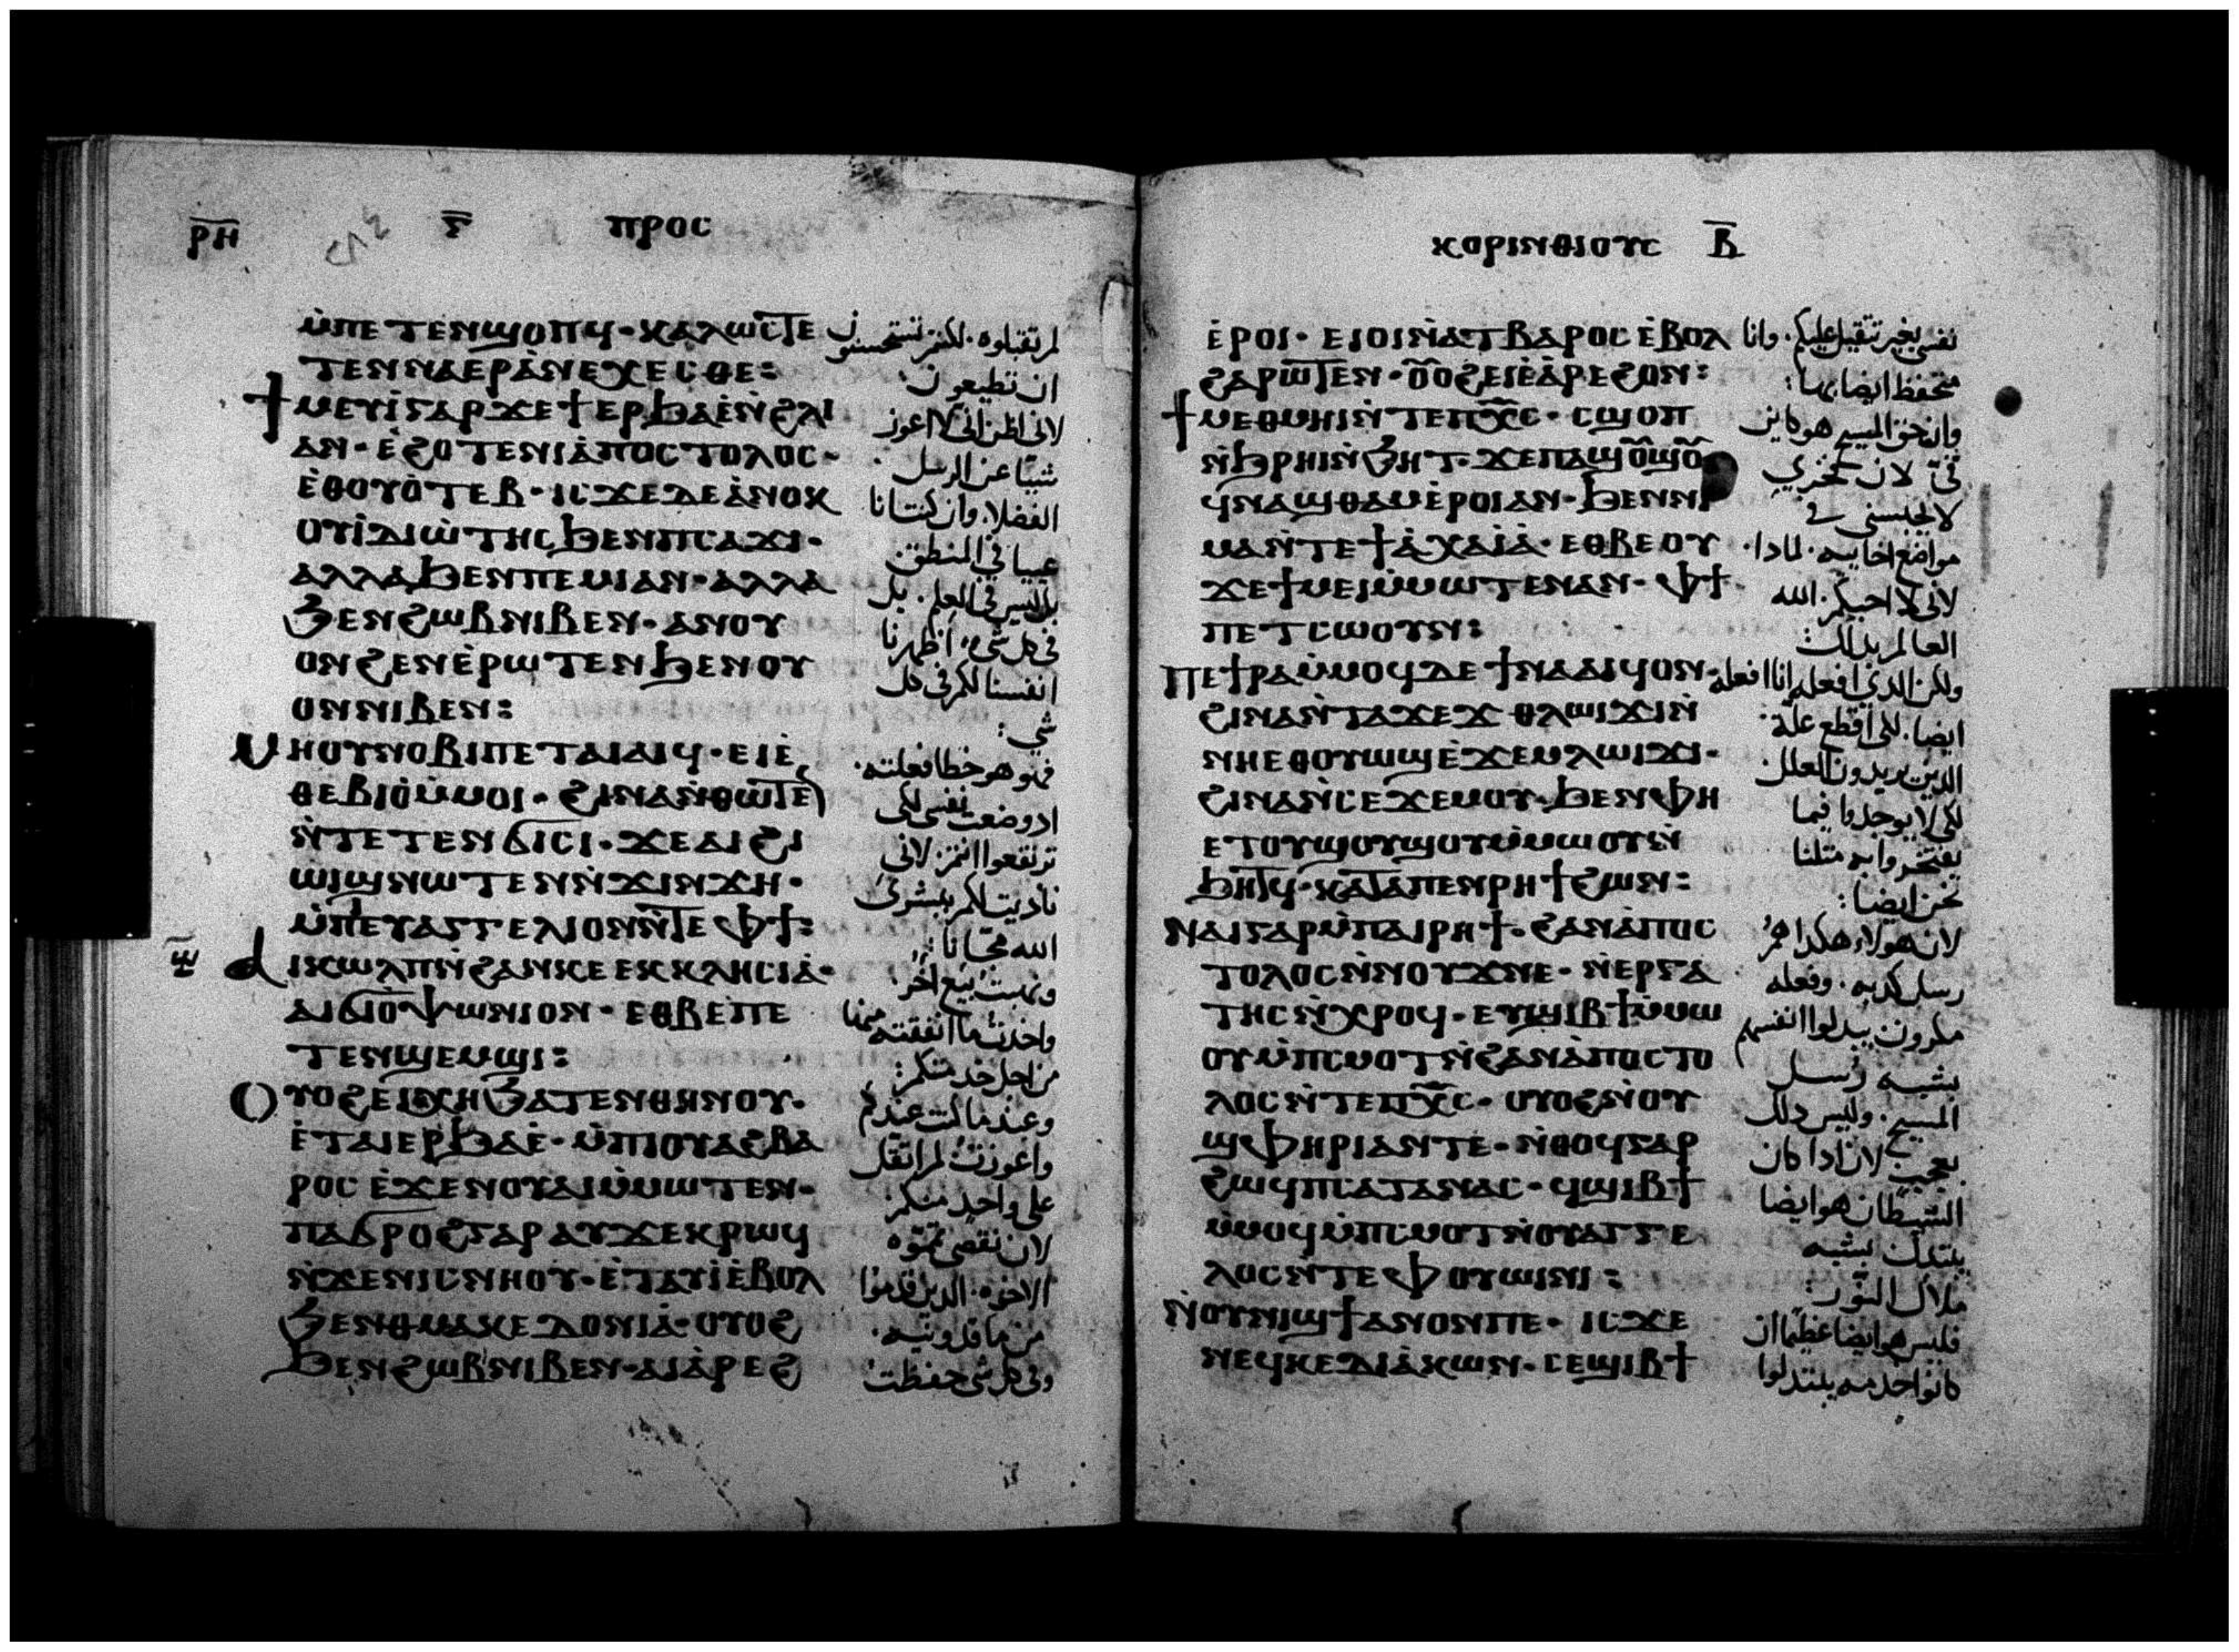 ⲣ̅ⲏ̅ ⲅ̅ ⲡⲣⲟⲥ
ⲙ̀ⲡⲉⲧⲉⲛϣⲟⲡϥ· ⲕⲁⲗⲱⲥⲧⲉ
ⲧⲉⲛⲛⲁⲉⲣⲁ̀ⲛⲉⲭⲉⲥⲑⲉ:
ϯⲙⲉⲩⲓ̀ⲅⲁⲣϫⲉϯⲉⲣϧⲁⲉ̀ⲛ̀ϩⲗⲓ
ⲁⲛ· ⲉ̀ϩⲟⲧⲉⲛⲓⲁ̀ⲡⲟⲥⲧⲟⲗⲟⲥ·
ⲉ̀ⲑⲟⲩⲟ̀ⲧⲉⲃ· ⲓⲥϫⲉⲇⲉⲁ̀ⲛⲟⲕ
ⲟⲩⲓ̀ⲇⲓⲱ̀ⲧⲏⲥϧⲉⲛⲡⲥⲁϫⲓ·
ⲁⲗⲗⲁϧⲉⲛⲡⲉⲙⲓⲁⲛ· ⲁⲗⲗⲁ
ϧⲉⲛϩⲱⲃⲛⲓⲃⲉⲛ· ⲁⲛⲟⲩ
ⲟⲛϩⲉⲛⲉ̀ⲣⲱⲧⲉⲛϧⲉⲛⲟⲩ
ⲟⲛⲛⲓⲃⲉⲛ:
ⲙⲏⲟⲩⲛⲟⲃⲓⲡⲉⲧⲁⲓⲁⲓϥ· ⲉⲓⲉ̀
ⲑⲉⲃⲓⲟ̀ⲙ̀ⲙⲟⲓ· ϩⲓⲛⲁⲛ̀ⲑⲱⲧⲉ
ⲛ̀ⲧⲉⲧⲉⲛϭⲓⲥⲓ· ϫⲉⲁⲓϩⲓ
ⲱⲓϣⲛⲱⲧⲉⲛⲛ̀ϫⲓⲛϫⲏ·
ⲙ̀ⲡⲉⲩⲁⲅⲅⲉⲗⲓⲟⲛⲛ̀ⲧⲉⲫϯ:
ⲁⲓⲕⲱⲗⲡⲛ̀ϩⲁⲛⲕⲉⲉⲕⲕⲗⲏⲥⲓⲁ̀·
ⲁⲓϭⲓⲟ̀ⲯⲱⲛⲓⲟⲛ· ⲉⲑⲃⲉⲡⲉ
ⲧⲉⲛϣⲉⲙϣⲓ:
ⲟⲩⲟϩⲉⲓⲭⲏϧⲁⲧⲉⲛⲑⲏⲛⲟⲩ·
ⲉ̀ⲧⲁⲓⲉⲣϧⲁⲉ̀· ⲙ̀ⲡⲓⲟⲩⲁϩⲃⲁ
ⲣⲟⲥ ⲉ̀ϫⲉⲛⲟⲩⲁⲓⲙ̀ⲙⲱⲧⲉⲛ·
ⲡⲁϭⲣⲟϩⲅⲁⲣ ⲁⲩϫⲉⲕⲣⲱϥ
ⲛ̀ϫⲉⲛⲓⲥⲛⲏⲟⲩ· ⲉ̀ⲧⲁⲩⲓ̀ⲉ̀ⲃⲟⲗ
ϧⲉⲛⲑⲙⲁⲕⲉⲇⲟⲛⲓⲁ̀· ⲟⲩⲟϩ
ϧⲉⲛϩⲱⲃⲛⲓⲃⲉⲛ· ⲁⲓⲁ̀ⲣⲉϩ
لم تقبلوه. لكنتم تستحسنون
ان تطيعون
لاني اظن اني لا اعوز
شيا عن الرسل
الفضلا. وان كنت انا
عييا في المنطق
بل ليس في العلم. بل
في كل شي اظهرنا
انفسنا لكم في كل
شي:
فهو هو خطا فعلته.
اد وضعت نفسي لكي
ترتفعوا انتم لاني
ناديت لكم ببشرى
الله مجانا:
ونهبت بيع اخر.
واخدت ما انفقته
من اجل خدمتكم:
وعند ما كنت عندكم
واعوزت لم اثقل
على واحد منكم
لان نقصي تموه
الاخوه. الدين قدموا
من ماقدونيه.
وفي كل شي حفظت
ⲕⲟⲣⲓⲛⲑⲓⲟⲩⲥ ⲃ̅
ⲉ̀ⲣⲟⲓ· ⲉⲓⲟⲓⲛ̀ⲁⲧⲃⲁⲣⲟⲥ ⲉ̀ⲃⲟⲗ
ϩⲁⲣⲱⲧⲉⲛ· ⲟⲟϩⲉⲓⲉ̀ⲁ̀ⲣⲉϩⲟⲛ:
ϯⲙⲉⲑⲙⲏⲓⲛ̀ⲧⲉⲡⲭ̅ⲥ̅· ⲥϣⲟⲡ
ⲛ̀ϧⲣⲏⲓⲛ̀ϧⲏⲧ· ϫⲉⲡⲁϣⲟϣⲟ
ϥⲛⲁϣⲑⲁⲙⲉ̀ⲣⲟⲓⲁⲛ· ϧⲉⲛⲛⲓ
ⲙⲁⲛ̀ⲧⲉϯⲁ̀ⲭⲁⲓ̀ⲁ̀· ⲉⲑⲃⲉⲟⲩ
ϫⲉϯⲙⲉⲓⲙ̀ⲙⲱⲧⲉⲛⲁⲛ· ⲫϯ
ⲡⲉⲧⲥⲱⲟⲩⲛ:
ⲡⲉϯⲣⲁⲙ̀ⲙⲟϥⲇⲉ ϯⲛⲁⲁⲓϥⲟⲛ·
ϩⲓⲛⲁⲛ̀ⲧⲁϫⲉϫ ⲑⲗⲱⲓϫⲓⲛ̀
ⲛⲏⲉⲑⲟⲩⲱϣⲉ̀ϫⲉⲙⲗⲱⲓϫⲓ·
ϩⲓⲛⲁⲛ̀ⲥⲉϫⲉⲙⲟⲩ· ϧⲉⲛⲫⲏ
ⲉⲧⲟⲩϣⲟⲩϣⲟⲩⲙ̀ⲙⲱⲟⲩⲛ̀
ϧⲏⲧϥ· ⲕⲁⲧⲁⲡⲉⲛⲣⲏϯϩⲱⲛ:
ⲛⲁⲓⲅⲁⲣⲙ̀ⲡⲁⲓⲣⲏϯ· ϩⲁⲛⲁ̀ⲡⲟⲥ
ⲧⲟⲗⲟⲥⲛ̀ⲛⲟⲩϫⲛⲉ· ⲛ̀ⲉⲣⲅⲁ
ⲧⲏⲥⲛ̀ⲭⲣⲟϥ· ⲉⲩϣⲓⲃϯⲙ̀ⲙⲱ
ⲟⲩⲙ̀ⲡⲥⲙⲟⲧⲛ̀ϩⲁⲛⲁ̀ⲡⲟⲥⲧⲟ
ⲗⲟⲥⲛ̀ⲧⲉⲡⲭ̅ⲥ̅· ⲟⲩⲟϩⲛ̀ⲟⲩ
ϣⲫⲏⲣⲓⲁⲛⲧⲉ· ⲛ̀ⲑⲟϥⲅⲁⲣ
ϩⲱϥⲡⲥⲁⲧⲁⲛⲁⲥ· ϥϣⲓⲃϯ
ⲙ̀ⲙⲟϥⲙ̀ⲡⲥⲙⲟⲧⲛ̀ⲟⲩⲁⲅⲅⲉ
ⲗⲟⲥⲛ̀ⲧⲉⲫⲟⲩⲱⲓⲛⲓ:
ⲛ̀ⲟⲩⲛⲓϣϯⲁⲛⲟⲛⲡⲉ· ⲓⲥϫⲉ
ⲛⲉϥⲕⲉⲇⲓⲁ̀ⲕⲱⲛ· ⲥⲉϣⲓⲃϯ
نفسي بغير تثقيل عليكم. وانا
متحفظ ايضا
وان حق المسيح هو كاين
في لان فخري
لا يحبسني في
مواضع اخاييه. لمادا.
لاني لا احبكم. الله
العالم بدلك
ولكن الدي افعله انا افعله
ايضا. لكي اقطع علة.
الدين يريدون العلل
لكي لا يوجدوا فيما
يفتخروا به مثلنا
نحن ايضا:
لان هولاء هكدا هم
رسل كدبه. وفعله
مكرون يبدلوا انفسهم
بشبه رسل
المسيح. وليس دلك
بعجب لان ادا كان
الشيطان هو ايضا
يتبدل بشبه
ملاك النور:
فليس هو ايضا عظيما ان
كانوا خدمه يتبدلوا